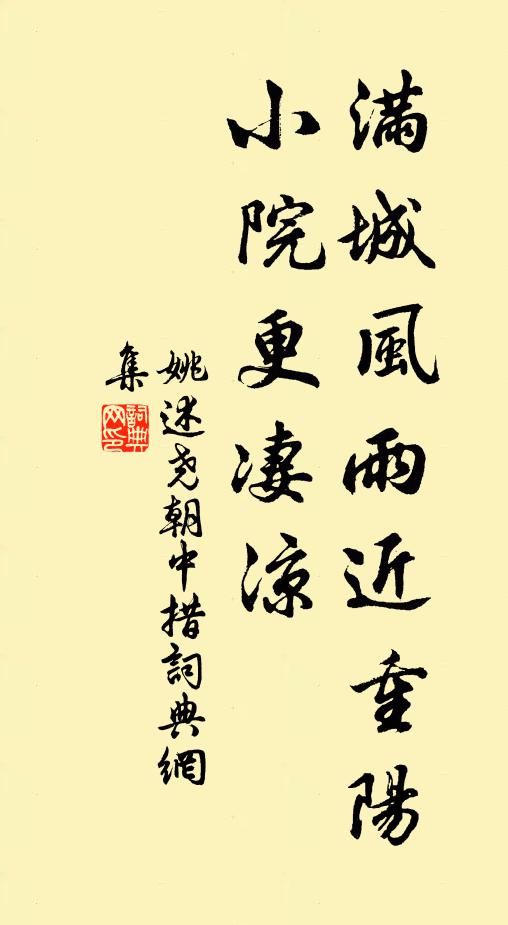 滿城風雨近重陽
小院更凄涼
姚述堯朝中措詞典網
集
詞典網印